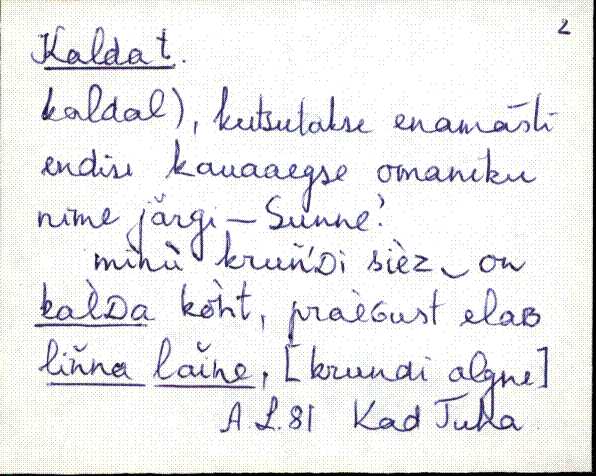 2
Kaldat.
kaldal), kutsutakse enamasti
endise kauaaegse omaniku
nime järgi – Sunne?
minù kruǹ'Di sièz‿on
kalDa kòht, praèGust elaB
liǹna laine, [krundi algne]
A.L. 81 Kad Tuha